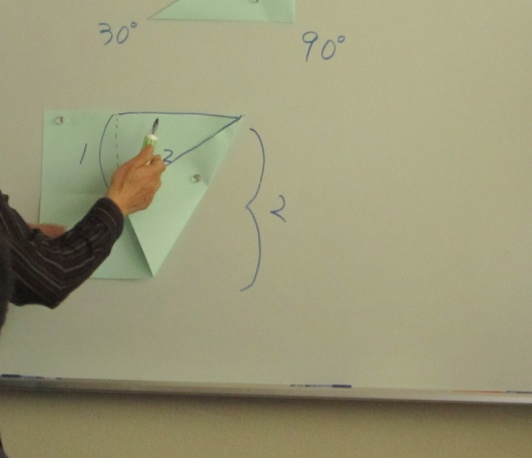 30°
90°
1
2
2